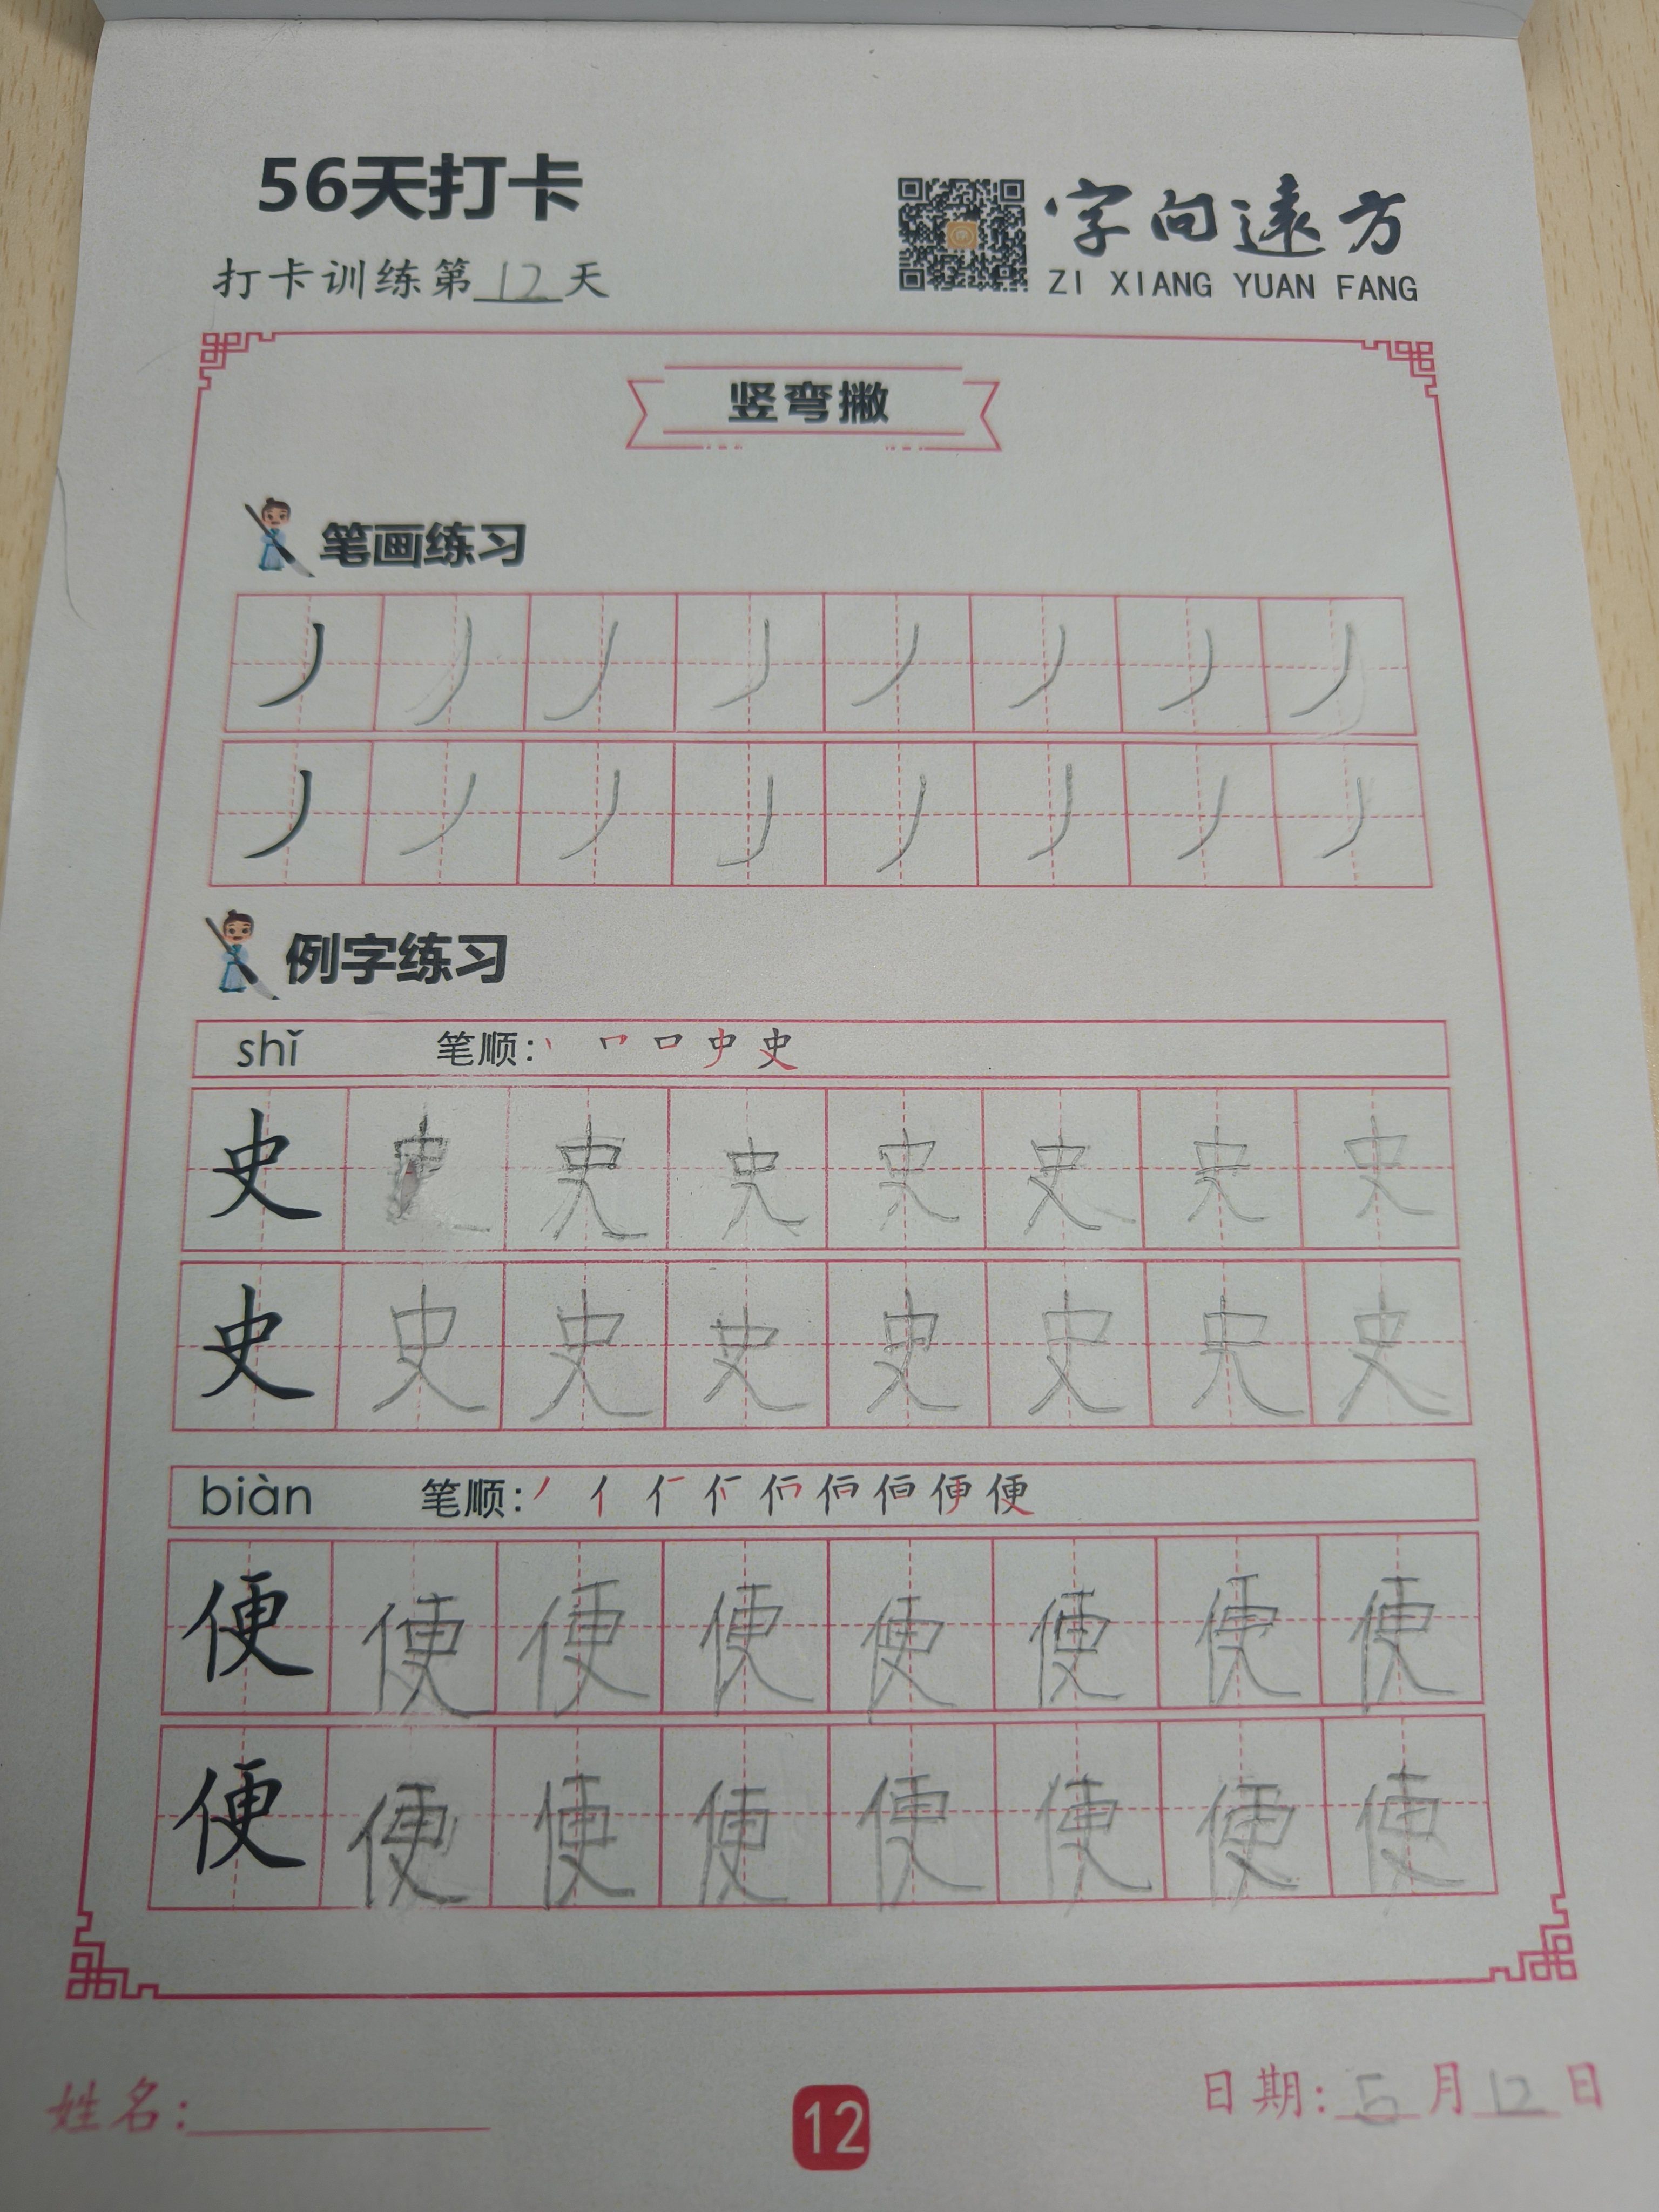 56天打卡
字向遠方
打卡训练第12天
ZI XIANG YUAN FANG
竖弯撇
笔画练习
丿丿丿丿丿丿丿丿
丿丿丿丿丿丿丿丿
例字练习
shǐ 笔顺: 丶 口 史
史史史史史史史史
史史史史史史史史
biàn 笔顺: 丿 亻 便
便便便便便便便便
便便便便便便便便
姓名:
12
日期:5月12日